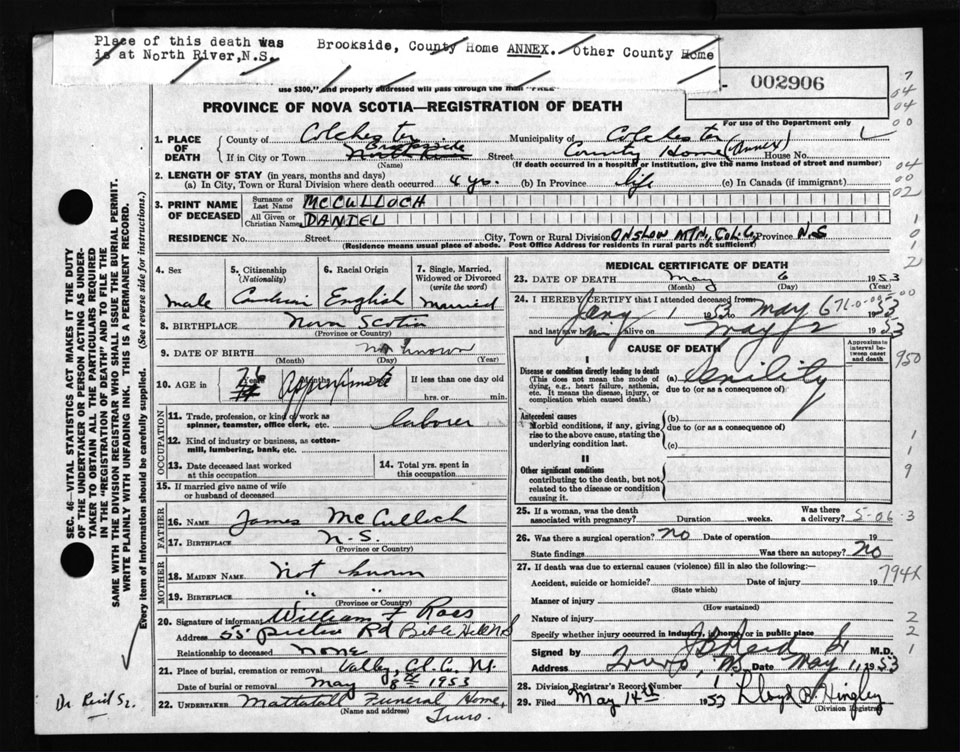 Place of this death was Brookside, County Home ANNEX. Other County Home
is at North River, N.S.
use $300," and properly addressed will pass through the mail "FREE"
002906
PROVINCE OF NOVA SCOTIA—REGISTRATION OF DEATH
For use of the Department only
1. PLACE OF DEATH
County of Colchester Municipality of Colchester
If in City or Town North River Brookside Street County Home (Annex) House No.
(Name) (If death occurred in a hospital or institution, give the name instead of street and number)
2. LENGTH OF STAY (in years, months and days)
(a) In City, Town or Rural Division where death occurred 4 yrs. (b) In Province life (c) In Canada (if immigrant)
3. PRINT NAME OF DECEASED
Surname or Last Name MCCULLOCH
All Given or Christian Names DANIEL
RESIDENCE No. Street City, Town or Rural Division ONSLOW MTN, Col. Co. Province N.S
(Residence means usual place of abode. Post Office Address for residents in rural parts not sufficient)
4. Sex male
5. Citizenship (Nationality) Canadian
6. Racial Origin English
7. Single, Married, Widowed or Divorced (write the word) married
8. BIRTHPLACE Nova Scotia
(Province or Country)
9. DATE OF BIRTH not known
(Month) (Day) (Year)
10. AGE in 76 Years Months Days Approximate If less than one day old
hrs. or min.
OCCUPATION
11. Trade, profession, or kind of work as spinner, teamster, office clerk, etc. laborer
12. Kind of industry or business, as cotton-mill, lumbering, bank, etc.
13. Date deceased last worked at this occupation
14. Total yrs. spent in this occupation
15. If married give name of wife or husband of deceased
FATHER
16. NAME James McCulloch
17. BIRTHPLACE N.S.
(Province or Country)
MOTHER
18. MAIDEN NAME Not known
19. BIRTHPLACE " "
(Province or Country)
20. Signature of informant William F Ross
Address 55 Pictou Rd Bible Hill N.S
Relationship to deceased none
21. Place of burial, cremation or removal Valley, Col. Co.
Date of burial or removal May 8th 1953
22. UNDERTAKER Mattatall Funeral Home,
(Name and address) Truro.
MEDICAL CERTIFICATE OF DEATH
23. DATE OF DEATH May 6 1953
(Month) (Day)
24. I HEREBY CERTIFY that I attended deceased from
Jany 1 1953 to May 6 1953
and last saw him alive on May 2 1953
I
CAUSE OF DEATH
Approximate interval between onset and death
Disease or condition directly leading to death
(This does not mean the mode of dying, e.g., heart failure, asthenia, etc. It means the disease, injury, or complication which caused death.)
(a) Senility
due to (or as a consequence of)
Antecedent causes
Morbid conditions, if any, giving rise to the above cause, stating the underlying condition last.
(b)
due to (or as a consequence of)
(c)
II
Other significant conditions
contributing to the death, but not related to the disease or condition causing it.
25. If a woman, was the death associated with pregnancy? Duration weeks. Was there a delivery? 5-06-3
26. Was there a surgical operation? No Date of operation 19
State findings Was there an autopsy? No
27. If death was due to external causes (violence) fill in also the following:
Accident, suicide or homicide? Date of injury 19
794X
(State which)
Manner of injury
(How sustained)
Nature of injury
Specify whether injury occurred in industry, in home, or in public place
Signed by M.D.
Address Truro, NS Date May 11, 1953
28. Division Registrar's Record Number 1
29. Filed May 14th 1953 Lloyd B. Hingley
(Division Registrar)
SEC. 46—VITAL STATISTICS ACT MAKES IT THE DUTY
OF THE UNDERTAKER OR PERSON ACTING AS UNDER-
TAKER TO OBTAIN ALL THE PARTICULARS REQUIRED
IN THE "REGISTRATION OF DEATH" AND TO FILE THE
SAME WITH THE DIVISION REGISTRAR WHO SHALL ISSUE THE BURIAL PERMIT.
WRITE PLAINLY WITH UNFADING INK. THIS IS A PERMANENT RECORD.
Every item of Information should be carefully supplied. (See reverse side for instructions.)
Dr Reid Sr.
7
04
04
00
04
00
02
1
0
1
2
950
1
1
9
2
2
1